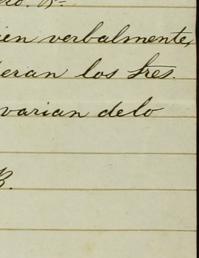 ien verbalmente,
ieran los Sres.
varian delo
B.